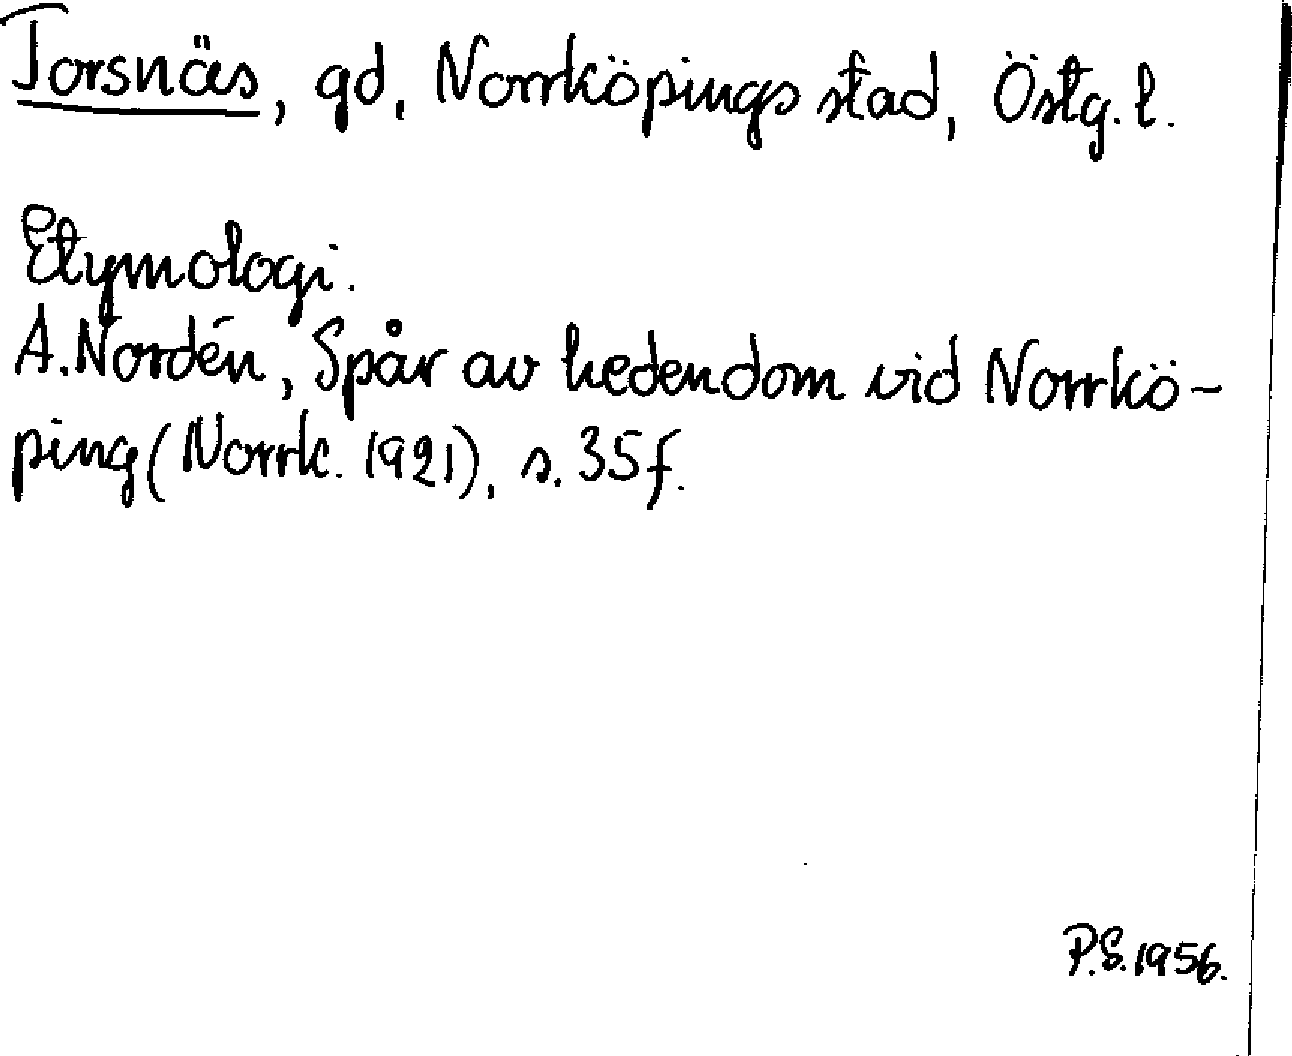 Torsnäs, gd, Norrköpings stad, Östg. l.
Etymologi.
A. Nordén, Spår av hedendom vid Norrkö-
ping (Norrk. 1921), s. 35 f.
P.S. 1956.